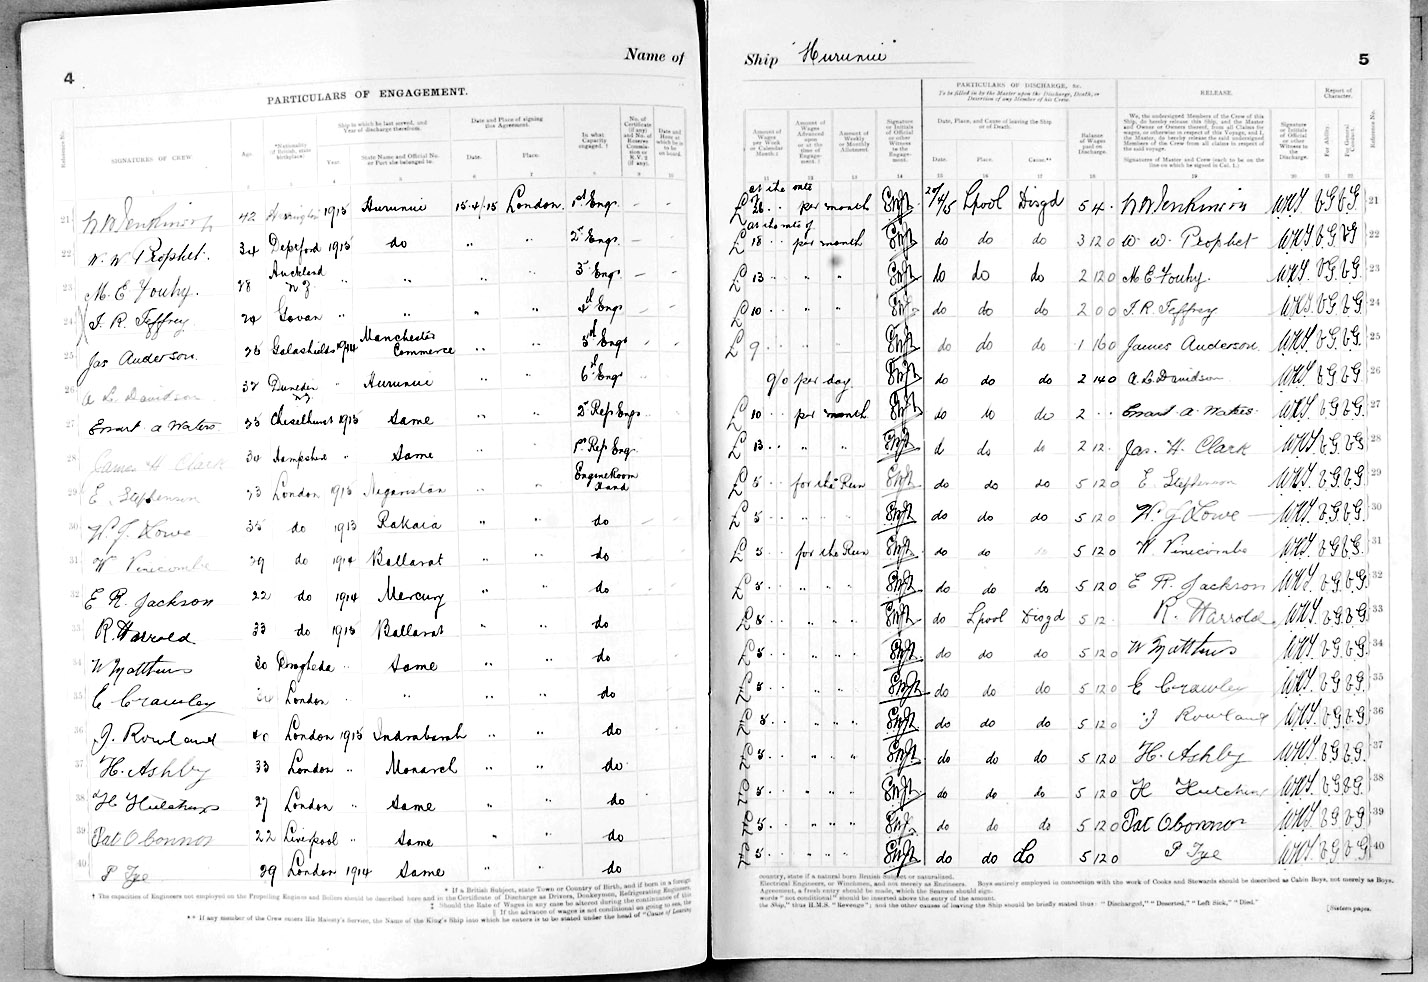 4
Name of
PARTICULARS OF ENGAGEMENT.
Reference No.
SIGNATURES OF CREW.
Age.
*Nationality (if British, state birthplace).
Ship in which he last served, and Year of discharge therefrom.
Year.
State Name and Official No. or Port she belonged to.
Date and Place of signing this Agreement.
Date.
Place.
In what Capacity engaged. †
21 42 1915 Hurunui 15.4.15 London. 1st Engr –
22 W. W. Prophet. 34 Deptford 1915 do " " 2d Engr –
23 M. E. Fouhy. 28 Auckland N Z " " " " 3d Engr –
24 J. R. Jeffrey 24 Govan " " " " 4th Engr -
25 Jas Anderson. 25 Galashields 1914 Manchester Commerce " " 5th Engr
26 A. L. Davidson 32 Dunedin NZ " Hurunui " " 6th Engr
27 A Waters 35 Chiselhurst 1915 Same " " 2d Ref Engr
28 James H Clark 34 Hampshire " Same " " 1st Ref Eng
29 E Stephenson 23 London 1915 " " Engine Room Hand
30 W. J. Lowe 35 do 1913 Rakaia " " do
31 W Vinecombe 29 do 1914 Ballarat " " do
32 E R. Jackson 22 do 1914 Mercury " do
33 R. Harrold 33 do 1915 Ballarat " " do
34 W Matthews 30 Drogheda " Same " " do
35 E Crawley London " " " " do
36 J. Rowland 40 London 1915 Indrabarah " " do
37 H. Ashby 33 London " Monarch " " do
38 H Hutchins 27 London " Same " " do
39 Pat O Connor 22 Liverpool " Same " " do
40 P Tye 29 London 1914 Same " " do
* If a British Subject, state Town or Country of Birth, and if born in a foreign
† The capacities of Engineers not employed on the Propelling Engines and Boilers should be described here and in the Certificate of Discharge as Drivers, Donkeymen, Refrigerating Engineers,
‡ Should the Rate of Wages in any case be altered during the continuance of the
|| If the advance of wages is not conditional on going to sea, the
** If any member of the Crew enters His Majesty's Service, the Name of the King's Ship into which he enters is to be stated under the head of "Cause of Leaving
Ship "Hurunui"
5
PARTICULARS OF DISCHARGE, &c.
To be filled in by the Master upon the Discharge, Death, or Desertion of any Member of his Crew.
RELEASE.
Report of Character.
Amount of Wages per Week or Calendar Month.‡
Amount of Wages Advanced upon or at the time of Engagement.
Amount of Weekly or Monthly Allotment
Signature or Initials of Official or other Witness to the Engagement.
Date, Place, and Cause of leaving the Ship or of Death.
Date.
Place.
Cause.**
Balance of Wages paid on Discharge.
We, the undersigned Members of the Crew of this Ship, do hereby release this Ship, and the Master and Owner or Owners thereof, from all Claims for wages, or otherwise in respect of this Voyage, and I, the Master, do hereby release the said undersigned Members of the Crew from all claims in respect of the said voyage.
Signatures of Master and Crew (each to be on the line on which he signed in Col. 1.)
Signature or Initials of Official or other Witness to the Discharge.
For Ability.
For General Conduct.
Reference No.
at the rate
£ per month Lpool Disgd 5 4 . W.H.S. V G V G 21
at the rate of
£ 18 .. per month do do do 3 12 0 W. W. Prophet W.H.S. V G V G 22
£ 13 .. " " do do do 2 12 0 M. E. Fouhy. W.H.S. V G. V G. 23
£ 10 .. " " do do do 2 0 0 J. R. Jeffrey W.H.S. V G. V G. 24
£ 9 " " do do do 1 16 0 James Anderson. W.H.S. V G. V G. 25
9/0 per day. do do do 2 14 0 A. L. Davidson W.H.S. V G. V G. 26
£ 10 .. per month do do do 2 .. A Waters. W.H.S. V G V G. 27
£ 13 .. " " do do 2 12 . Jas. H. Clark W.H.S. V G. V G 28
£ 5 .. for the Run do do do 5 12 0 E. Stephenson W.H.S. V G. V G. 29
£ 5 .. " " " do do do 5 12 0 W. J. Lowe W.H.S. V G. V G. 30
£ 5 .. for the Run do do do 5 12 0 W. Vinecombe W.H.S. V G. V G. 31
£ 5 .. " " " do do do 5 12 0 E R. Jackson W.H.S. V G. V G. 32
£ 5 .. " " " do Lpool Disgd 5 12 . R. Harrold. W.H.S. V G. V G. 33
£ 5 .. " " " do do do 5 12 0 W Matthews W.H.S. V G. V G. 34
£ 5 .. " " " do do do 5 12 0 E Crawley W.H.S. V G. V G. 35
£ 5 .. " " " do do do 5 12 0 J Rowland W.H.S. V G. V G. 36
£ 5 .. " " " do do do 5 12 0 H. Ashby W.H.S. V G. V G. 37
£ 5 .. " " " do do do 5 12 0 H Hutchins W.H.S. V G. V G. 38
£ 5 .. " " " do do do 5 12 0 Pat O Connor W.H.S. V G. V G. 39
£ 5 .. " " " do do Do 5 12 0 P Tye W.H.S. V G. V G 40
country, state if a natural born British Subject or naturalized.
Electrical Engineers, or Winchmen, and not merely as Engineers. Boys entirely employed in connection with the work of Cooks and Stewards should be described as Cabin Boys, not merely as Boys.
Agreement, a fresh entry should be made, which the Seamen should sign.
words "not conditional" should be inserted above the entry of the amount.
the Ship," thus H.M.S. "Revenge"; and the other causes of leaving the Ship should be briefly stated thus: "Discharged," "Deserted," "Left Sick," "Died."
[Sixteen pages.